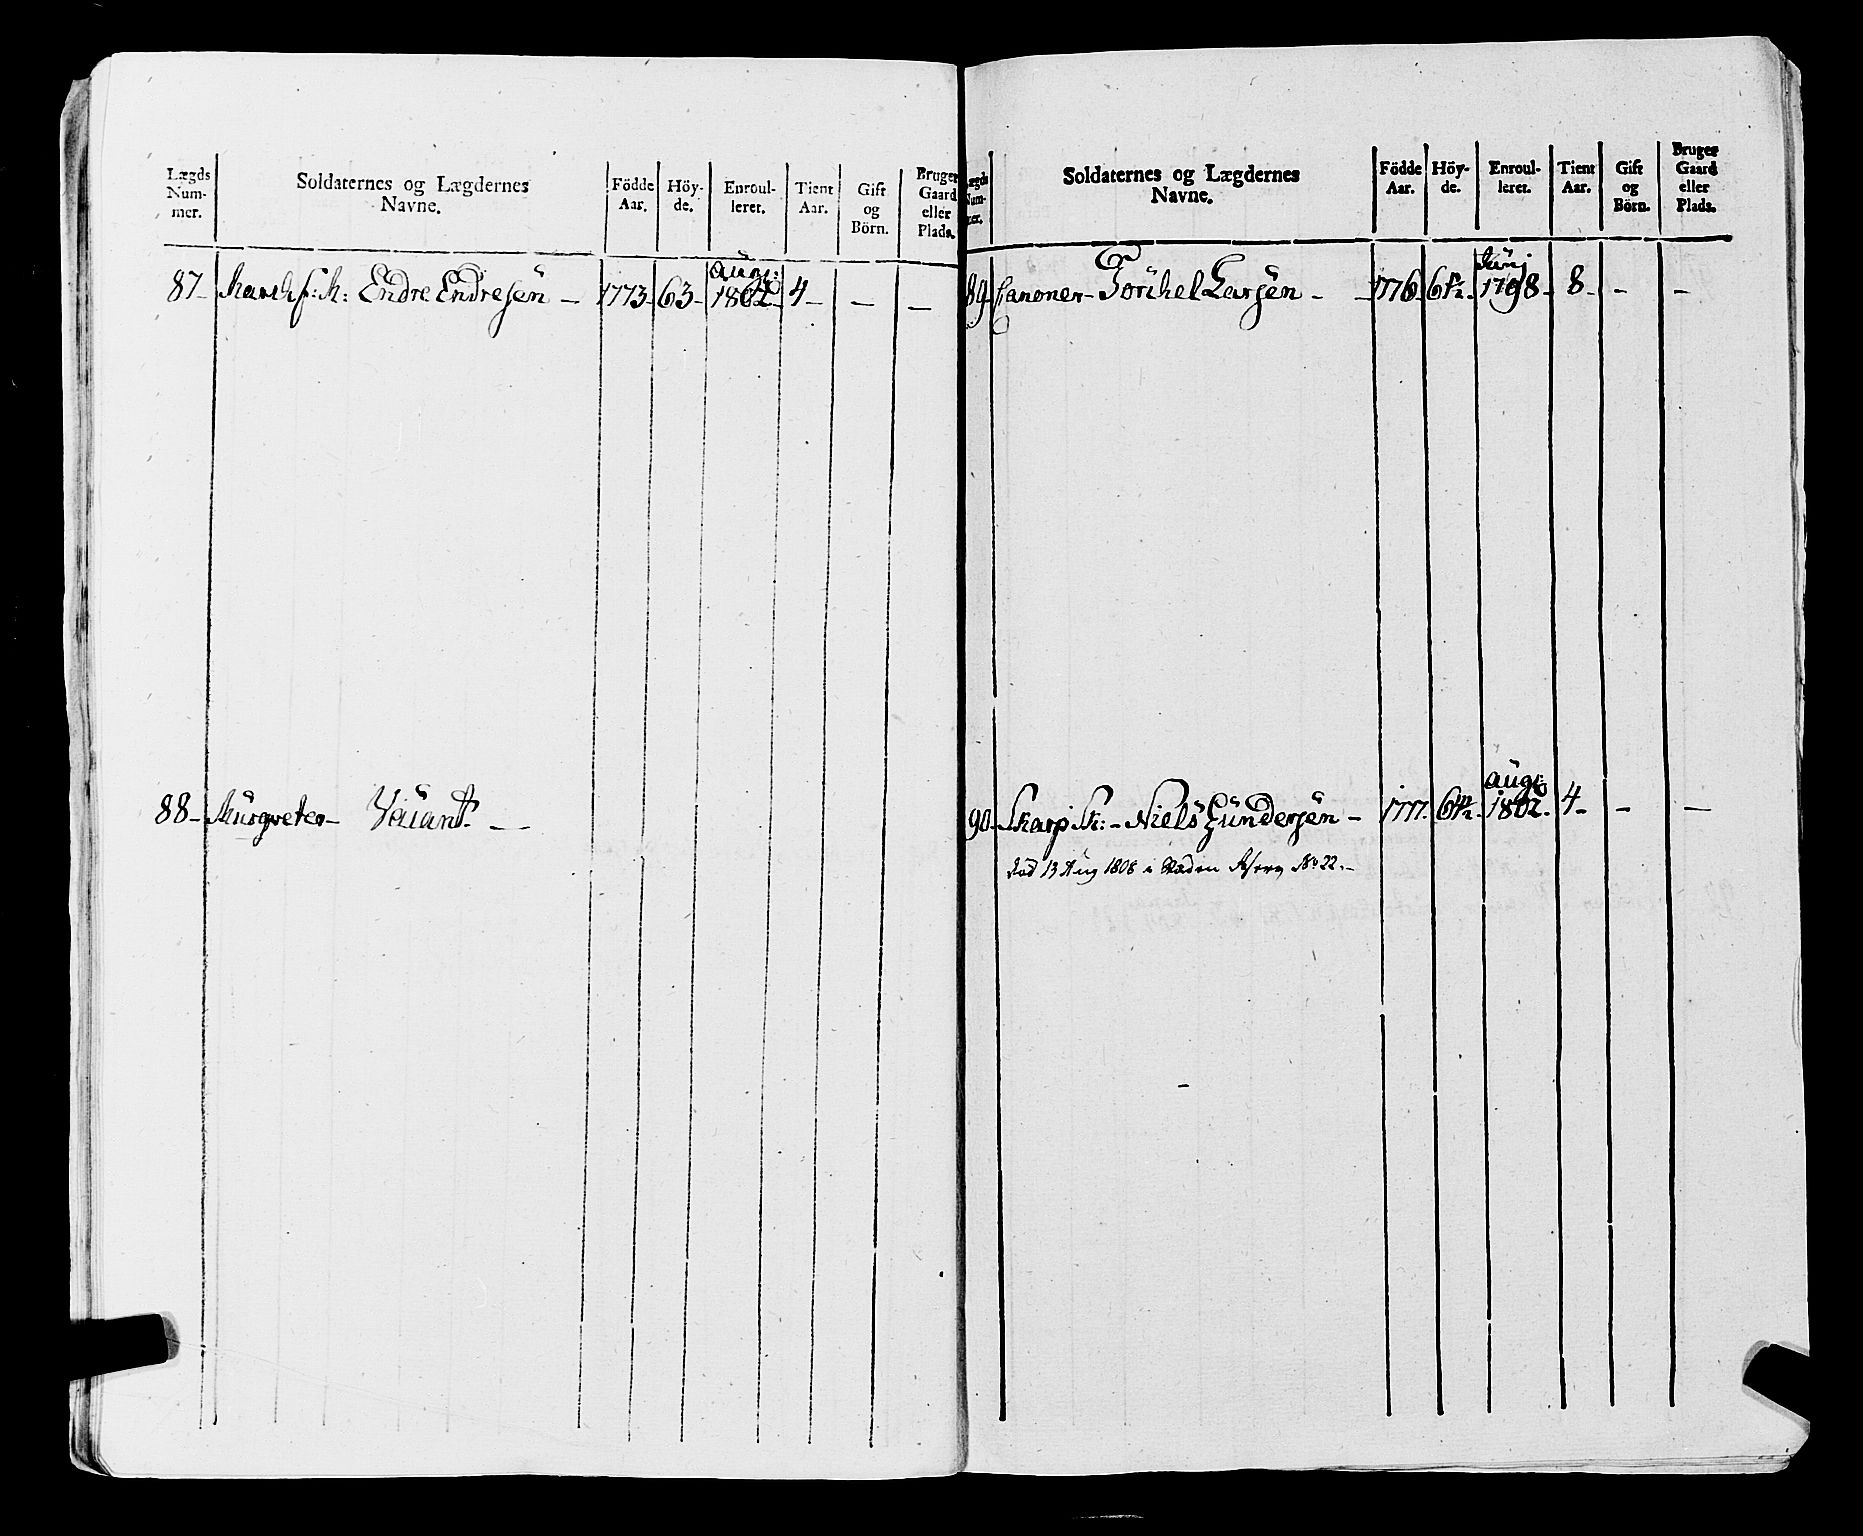 Lægds Num-mer. Soldaternes og Lægdernes Navne. Födde Aar. Höy-de. Enroul-leret. Tient Aar. Gift og Börn. Bruger Gaard eller Plads.
Augs:
87- k: Endre Endresen - 1773- 63- 1802- 4- - -
88- Musqveter- Vacant. -
Lægds Num-mer. Soldaternes og Lægdernes Navne. Födde Aar. Höy-de. Enroul-leret. Tient Aar. Gift og Börn. Bruger Gaard eller Plads.
Junj
89- Canoner- Torckel Larsen - - 1776 1798- 8- - -
Augs:
90- Skarp Sk: - Niels Gundersen - 1777. 1802. 4- - -
död 13 Aug 1808 i No 22.-